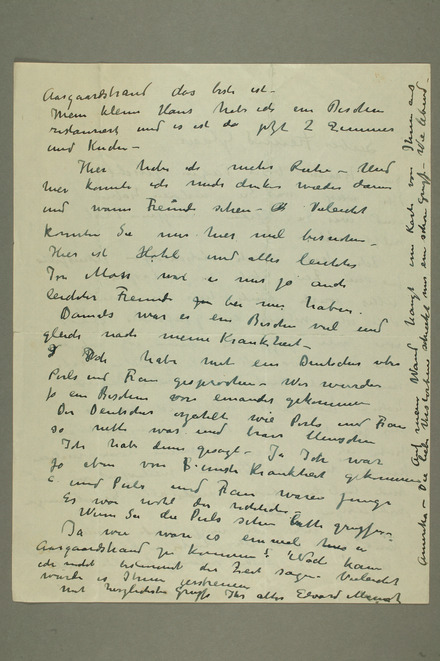 Aasgaardstrand das beste ist –
Mein kleine Haus habe ich ein Bischen
restauriert und es ist da jetzt 2 Zimmer
und Küche –
Hier habe ich mehr Ruhe – Und
hier konnte ich mich denken wieder dann
und wann Freunde sehen – Vieleicht
konnten Sie uns hier mal besuchen –
Hier ist Hotel und alles leichter
In Moss war es mir ja auch
leichter Freunde bei mir haben.
Damals war es ein Bischen viel und
gleich nach meine Krankheit –
Ich habe mit ein Deutschen über
Perls und Frau gesprochen – Wir wurden
ja ein Bischen von einander gekommen
Der Deutscher erzählte wie Perls und Frau
so nette war und brave Menschen
Ich habe denn gesagt – Ja Ich war
ja eben von Krankheit gekommen
und Perls und Frau waren junge
Es war wohl das
Wenn Sie die Perls sehen bitte grüssen –
Ja wie wäre es einmal hier in
Aasgaardstrand zu kommen? Noch kann
ich nicht bestimmt die Zeit sagen Vieleicht
würde es Ihnen
Mit herzlichsten Grüsse Ihr alter Edvard Munch
Auf mein Wand hängt ein Karte von Ihnen aus
Amerika – Die liebe schickt uns ein schön gruss – Wie lebend –